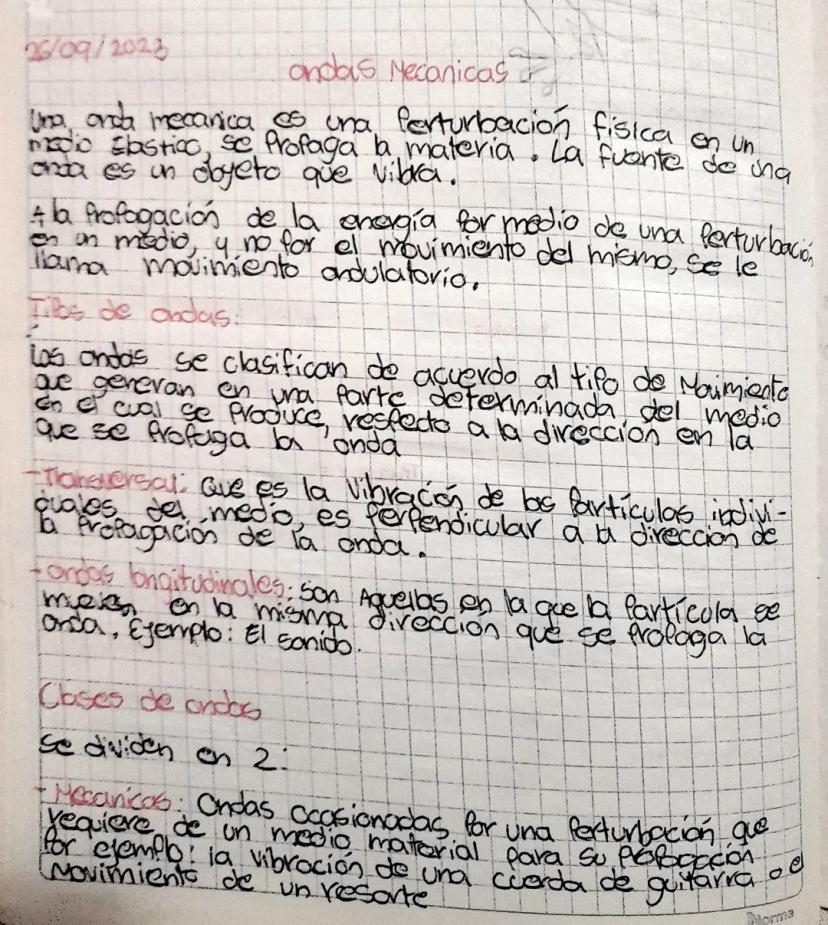 26/09/2023
ondas Mecanicas
Una onda mecanica es una Perturbación física en un
medio Elastico, se Propaga la materia. La fuente de una
onda es un objeto que vibra.
+ la Propagación de la energía por medio de una Perturbación
en un medio, y no por el movimiento del mismo, se le
llama movimiento ondulatorio.
Tipos de ondas:
las ondas se clasifican de acuerdo al tipo de Movimiento
que generan en una parte determinada del medio
en el cual se Produce, respecto a la dirección en la
que se Propaga la onda
- Transversal: Que es la vibración de las Partículas indivi-
duales del medio, es perpendicular a la dirección de
la Propagación de la onda.
- ondas longitudinales: Son Aquellas en la que la Partícula se
mueven en la misma dirección que se propaga la
onda, Ejemplo: El sonido.
Clases de ondas
se dividen en 2:
- Mecanicas: Ondas ocasionadas Por una Perturbación que
requiere de un medio material para su
Por ejemplo: la vibración de una cuerda de guitarra o el
Movimiento de un resorte
Norma